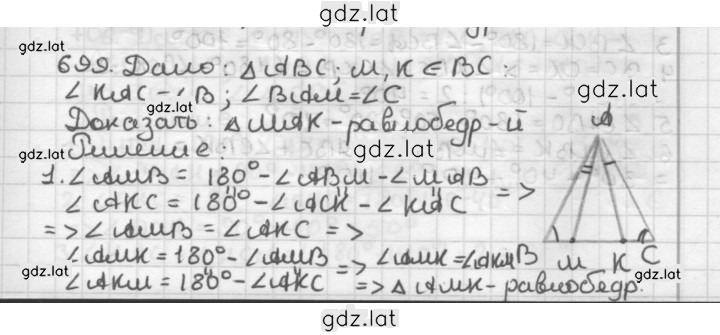 gdz.lat
gdz.lat
699. Дано: △ABC; M, K ∈ BC:
gdz.lat
∠KAC = ∠B; ∠BAM = ∠C
gdz.lat
Доказать: △MAK - равнобедр-й
A
Решение:
gdz.lat
1. ∠AMB = 180° - ∠ABM - ∠MAB
∠AKC = 180° - ∠ACK - ∠KAC =>
=> ∠AMB = ∠AKC =>
M K C
∠AMK = 180° - ∠AMB => ∠AMK = ∠AKM
∠AKM = 180° - ∠AKC => △AMK - равнобедр.
gdz.lat
gdz.lat
gdz.lat